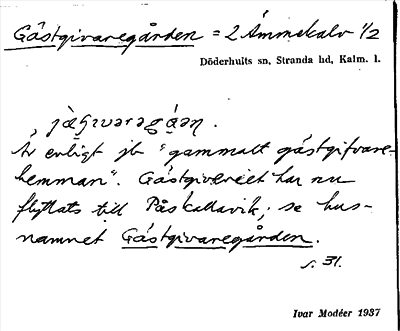 Gästgivaregården = 2 Ämmekalv 1/2
Döderhults sn, Stranda hd, Kalm. l.
Är enligt jb "gammalt gästgifvare-
hemman". Gästgiveriet har nu
flyttats till Påskallavik; se hus-
namnet Gästgivaregården.
s. 31.
Ivar Modéer 1937